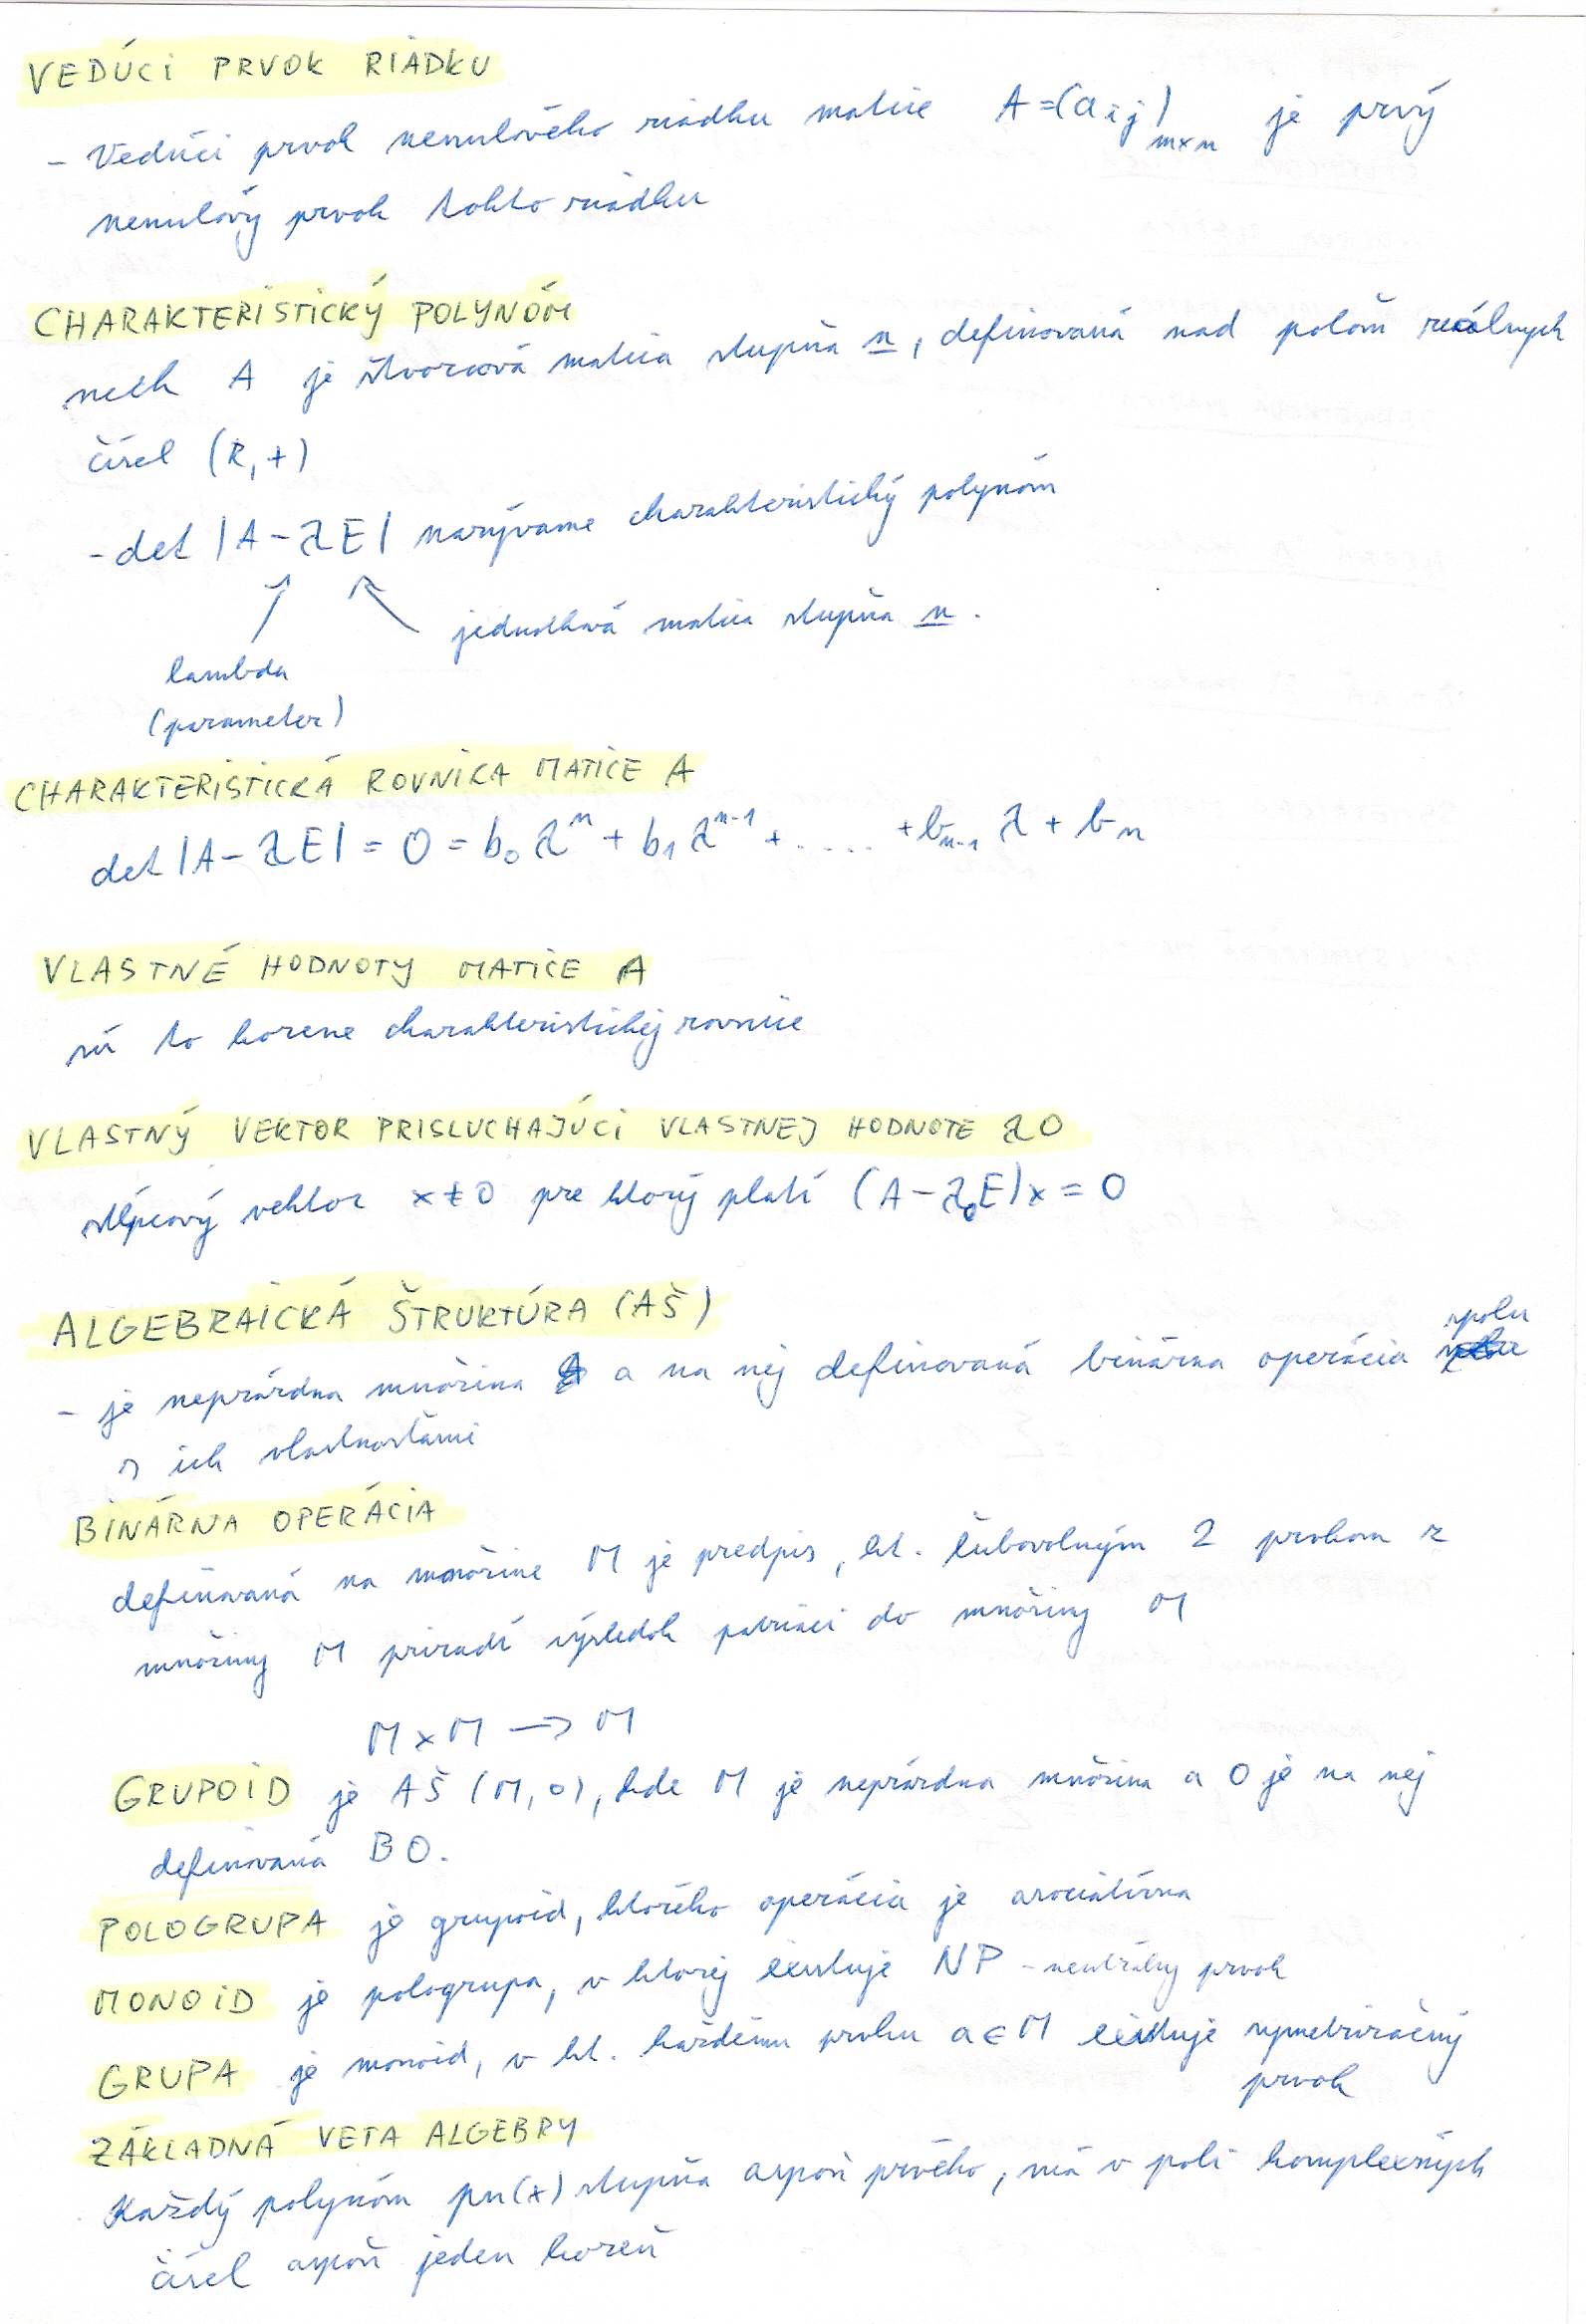 VEDÚCI PRVOK RIADKU
- Vedúci prvok nenulového riadku matice A=(aij)m×n je prvý
nenulový prvok tohto riadku
CHARAKTERISTICKÝ POLYNÓM
nech A je štvorcová matica stupňa n, definovaná nad poľom reálnych
čísel (R,+)
- det |A-λE| nazývame charakteristický polynóm
jednotková matica stupňa n.
lambda
(parameter)
CHARAKTERISTICKÁ ROVNICA MATICE A
det |A-λE| = 0 = b₀λⁿ + b₁λⁿ⁻¹ + ..... + bₙ₋₁ λ + bₙ
VLASTNÉ HODNOTY MATICE A
sú to korene charakteristickej rovnice
VLASTNÝ VEKTOR PRISLUCHAJÚCI VLASTNEJ HODNOTE λ0
stĺpcový vektor x≠0 pre ktorý platí (A-λ₀E)x = 0
ALGEBRAICKÁ ŠTRUKTÚRA (AŠ)
- je neprázdna množina a na nej definovaná binárna operácia spolu
s ich vlastnosťami
BINÁRNA OPERÁCIA
definovaná na množine M je predpis, kt. ľubovolným 2 prvkom z
množiny M priradí výsledok patriaci do množiny M
M×M → M
GRUPOID je AŠ (M,o), kde M je neprázdna množina a O je na nej
definovaná BO.
POLOGRUPA je grupoid, ktorého operácia je asociatívna
MONOID je pologrupa, v ktorej existuje NP - neutrálny prvok
GRUPA je monoid, v kt. každému prvku a∈M existuje symetrizačný
prvok
ZÁKLADNÁ VETA ALGEBRY
Každý polynóm pn(x) stupňa aspoň prvého, má v poli komplexných
čísel aspoň jeden koreň